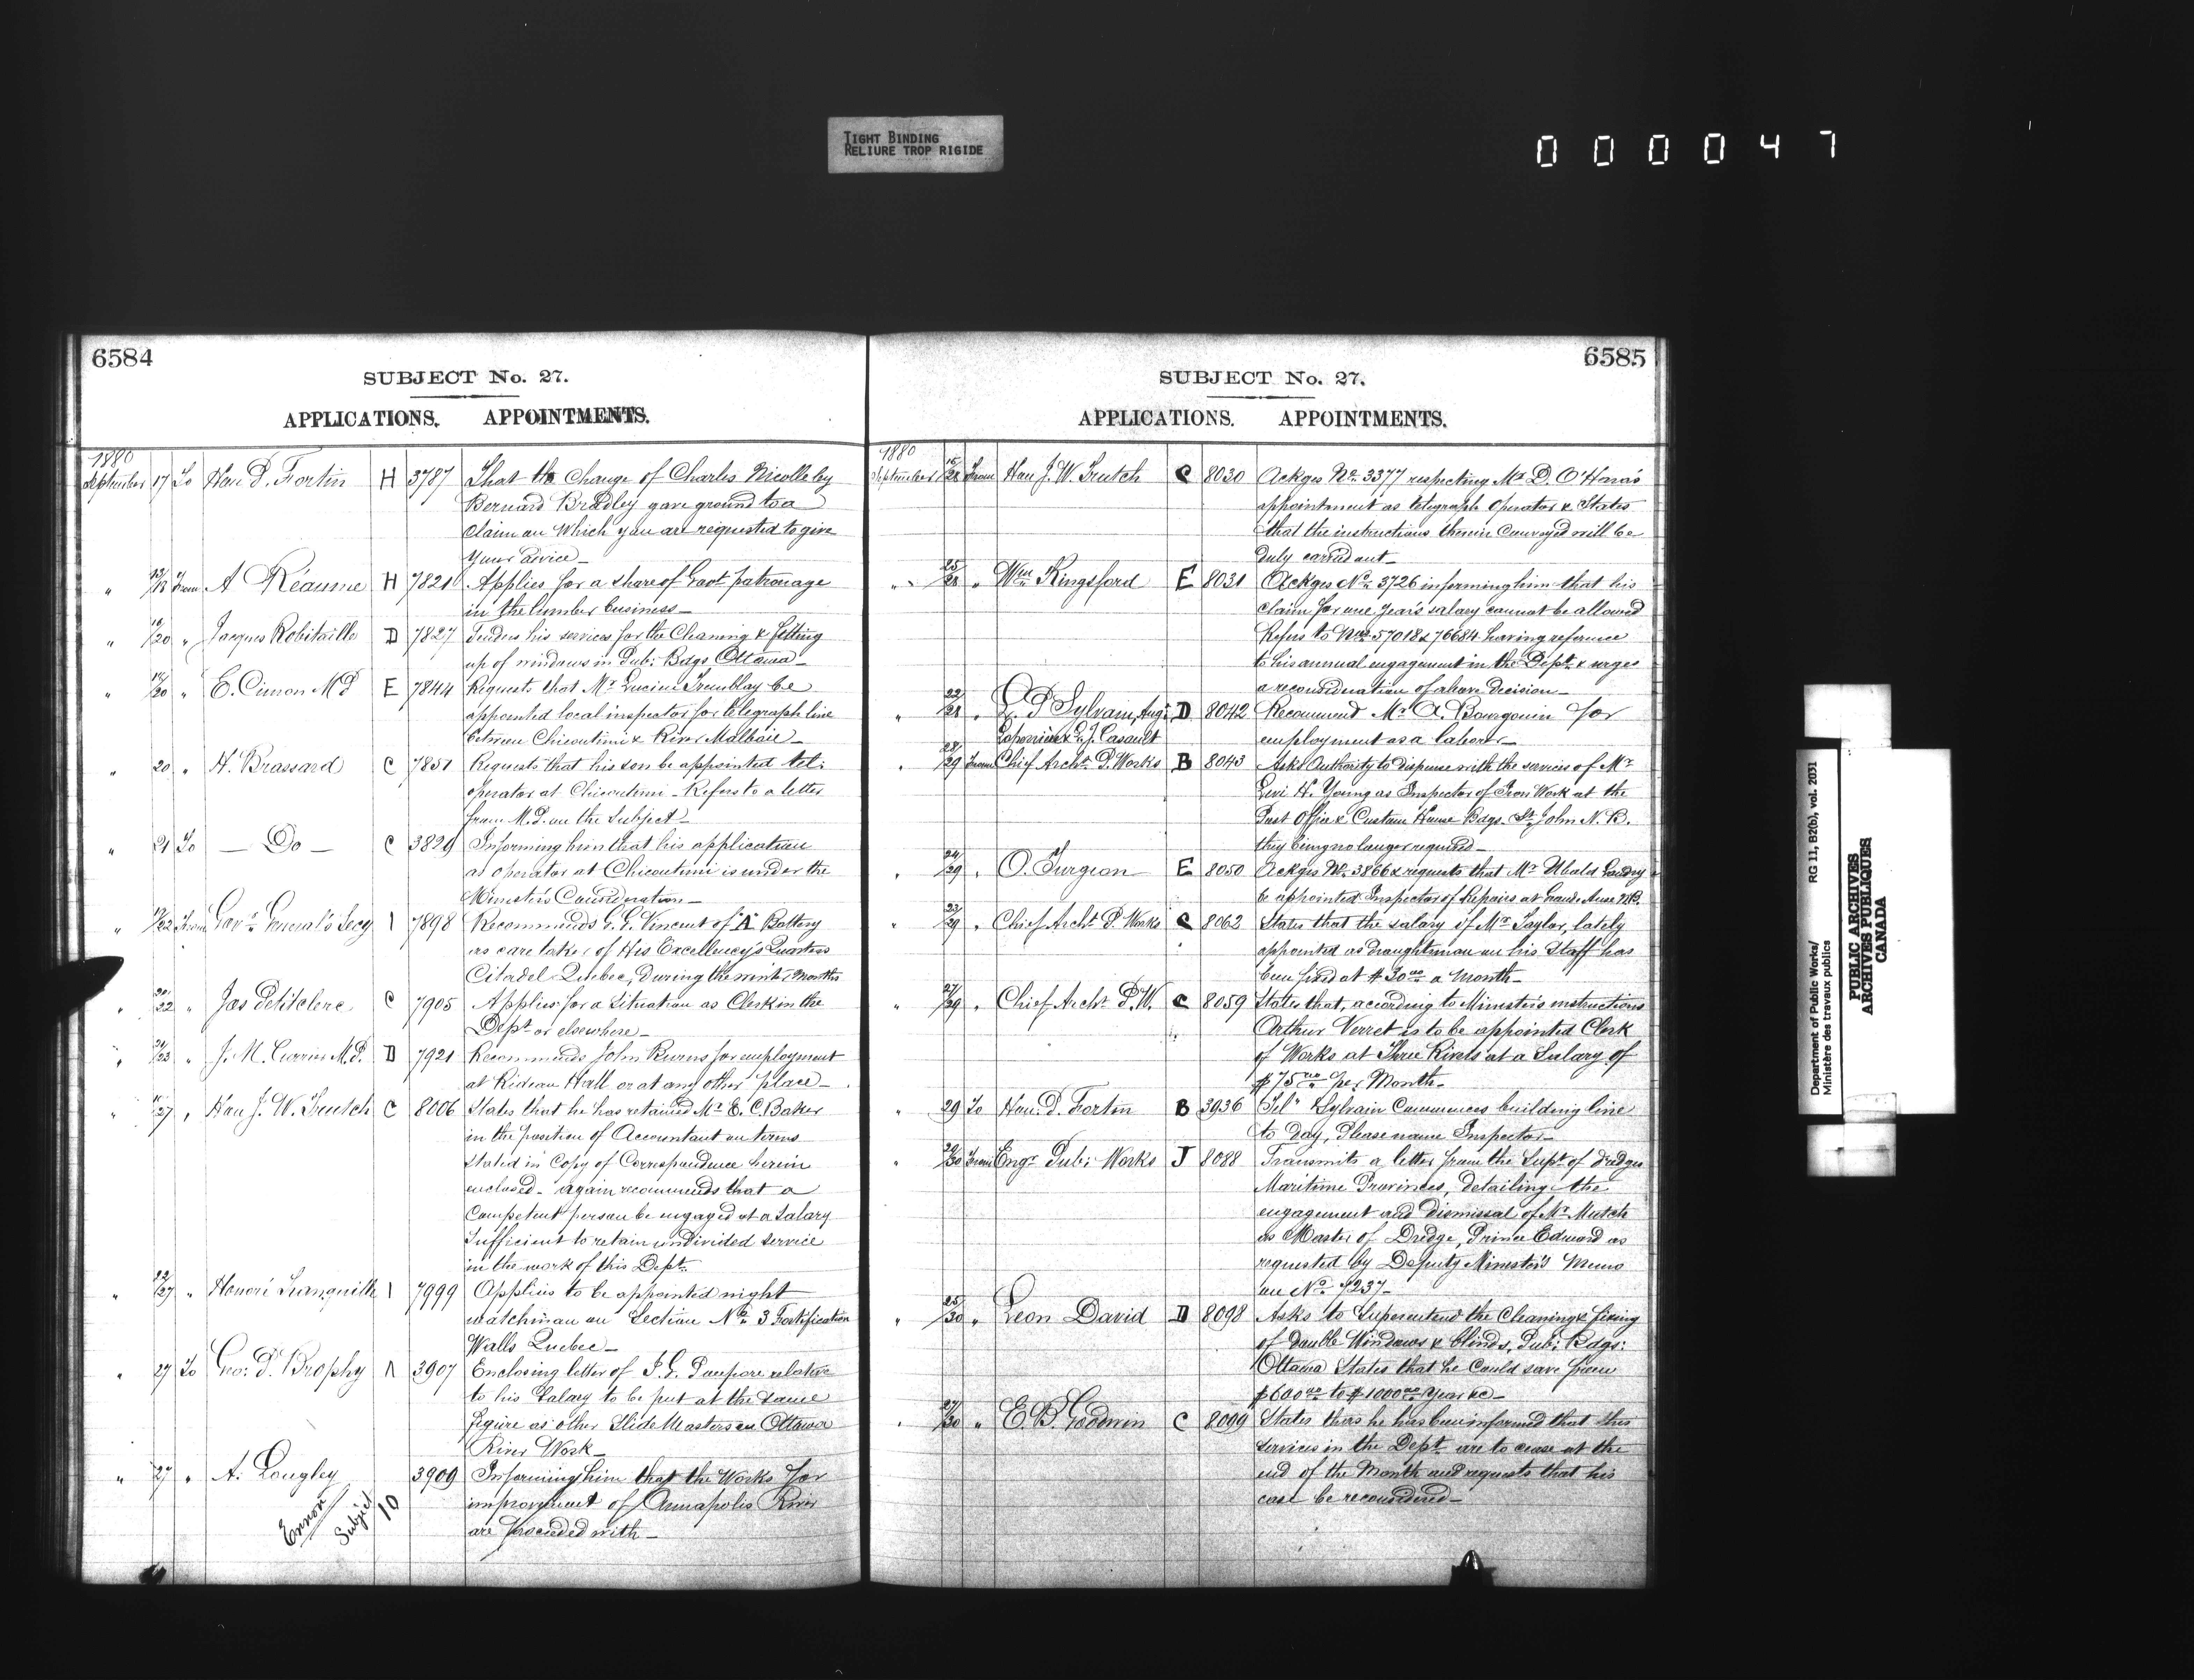 TIGHT BINDING
RELIURE TROP RIGIDE
000047
6584
SUBJECT No. 27.
APPLICATIONS. APPOINTMENTS.
1880
September 17 To Hon P. Fortin H 3787 That the Change of Charles Nicolle by
Bernard Bradley gave ground to a
Claim on Which you are requested to give
Your advice_
" 13/18 From A Réaume H 7821 Applies for a share of Govt patronage
in the lumber business_
" 18/20 " Jacques Robitaille D 7827 Tenders his services for the Cleaning & fitting
up of windows in Pub: Bdgs Ottawa_
" 18/20 " E. Cimon M P E 7844 Requests that Mr Lucien Tremblay be
appointed local inspector for telegraph line
between Chicoutimi & River Malbaie_
" 20 " H. Brassard C 7851 Requests that his son be appointed tel:
operator at Chicoutimi - Refers to a letter
from M.P. on the Subject_
" 21 To — Do — C 3829 Informing him that his application
as operator at Chicoutimi is under the
Minister's Consideration_
" /22 From Govr General's Secy I 7898 Recommends G. G. Vincent of "A" Battery
as care taker of His Excellency's Quarters
Citadel Quebec, During the next 7 Months
" 20/22 " Jas Petitclerc C 7905 Applies for a Situation as Clerk in the
Dept or elsewhere_
" 21/23 " J. M. Currier M.P. D 7921 Recommends John Burns for employment
at Rideau Hall or at any other place_
" /27 " Hon J. W. Trutch C 8006 States that he has retained Mr E. C. Baker
in the position of Accountant on terms
stated in Copy of Correspondence herein
enclosed - again recommends that a
Competent person be engaged at a Salary
Sufficient to retain undivided service
in the work of this Dept.
" 22/27 " Honoré Tranquille I 7999 Applies to be appointed night
watchman on Section No 3 Fortification
Walls Quebec_
" 27 To Geo: P. Brophy A 3907 Enclosing letter of relative
to his Salary to be put at the same
figure as other Slide Masters on Ottawa
River Work_
" 27 " A. Longley 3909 Informing him that the Works for
improvement of Annapolis River
are proceeded with_
Error
Subject
10
6585
SUBJECT No. 27.
APPLICATIONS. APPOINTMENTS.
1880
September 15/28 From Hon J. W. Trutch C 8030 Ackges No 3377 respecting Mr D. O'Hara's
appointment as telegraph Operator & States
that the instructions therein Conveyed will be
duly carried out_
" 25/28 " Wm Kingsford E 8031 Ackges No 3726 informing him that his
claim for one year's salary cannot be allowed
Refers to Nos 57018 & 76684 having reference
to his annual engagement in the Dept & urges
a reconsideration of above decision_
" 22/28 " L. P Sylvain, Augt D 8042 Recommend Mr A. Bourgouin for
Laperrière & L. J. Casault employment as a laborer_
" 28/29 From Chief Archt P. Works B 8043 Asks Authority to dispense with the services of Mr
Levi H. Young as Inspector of Iron Work at the
Post Office & Custom House Bdgs. St. John N. B.
they being no longer required_
" 24/29 " O. Turgeon E 8050 Ackges No 3866 & requests that Mr Ubald Landry
be appointed Inspector of Repairs at Grande Anse N.B.
" 23/29 " Chief Archt P. Works C 8062 States that the salary of Mr Taylor, lately
appointed as draughtsman on his Staff has
been fixed at $30.00 a month_
" 27/29 " Chief Archt P. W. C 8059 States that, according to Minister's instructions
Arthur Verret is to be appointed Clerk
of Works at Three Rivers at a Salary of
$75.00 per Month_
" 29 To Hon. P. Fortin B 3936 Telm Sylvain Commences building line
to Day, Please name Inspector_
" 29/30 From Engr Pub: Works J 8088 Transmits a letter from the Supt of dredges
Maritime Provinces, detailing the
engagement and Dismissal of Mr Mutch
as Master of Dredge, Prince Edward as
requested by Deputy Minister's Memo
on No 7237_
" 25/30 " Leon David D 8098 Asks to Superintend the Cleaning & fixing
of double Windows & blinds, Pub: Bdgs:
Ottawa States that he Could save from
$600.00 to $1000.00 Year &c_
" 27/30 " E. B. Godwin C 8099 States thers he has been informed that his
services in the Dept. are to cease at the
end of the Month and requests that his
case be reconsidered_
Department of Public Works/ RG 11, B2(b), vol. 2031
Ministère des travaux publics
PUBLIC ARCHIVES
ARCHIVES PUBLIQUES
CANADA